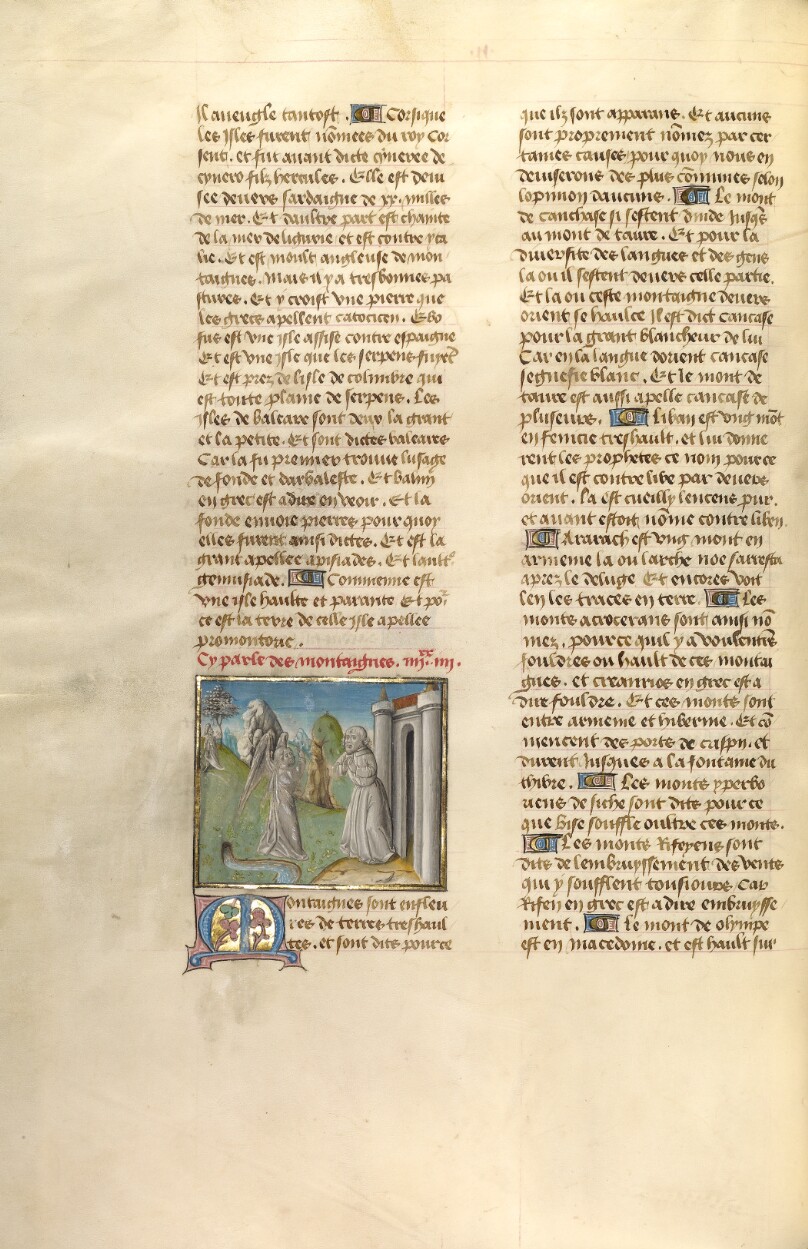 Il aveugle tantost. Corsique
les Isles furent nõmees du roy Cor
et fut avant dicte cyneree de
cynero filz hercules. Elle est devi
see devers sardaigne de xx. milles
de mer. Et daultre part est chainte
de la mer de ligurie et est contre yta
lie. Et est moult angleuse de mon
taignes. Mais il y a tresbonnes pa
stures. Et y croist une pierre que
les grecs apellent catociten. Ebo
sue est une isle assise contre espaigne
Et est une isle que les serpens
Et est prez de lisle de colimbre qui
est toute plaine de serpens. Les
isles de baleare sont deux la grant
et la petite. Et sont dictes baleares
Car la fu premier trouve lusage
de fonde et darbaleste. Et
en grec est a dire envoir. Et la
fonde envoie pierres pour quoy
elles furent ainsi dictes. Et est la
grant apellee apisiades. Et lault'
gemisiade. Commenie est
une isle haulte et parante Et po'
ce est la terre de celle isle apellee
promontoire.
Cy parle des montaignes.
Montaignes sont enfleu
res de terres treshaul
tes. et sont dits pource
que ilz sont apparans. Et aucuns
sont proprement nõmez par cer
taines causes pour quoy nous en
deviserons des plus cõmunes selon
lopinion daucuns. Le mont
de cauchase si sestent dinde jusqs
au mont de taure. Et pour la
diversite des langues et des gens
la ou il sestent devers celle partie.
Et la ou ceste montaigne devers
orient se haulce Il est dict caucase
pour la grant blancheur de lui
Car en la langue dorient caucase
segnefie blanc. Et le mont de
taure est aussi apelle caucase de
pluseurs. Liban est ung mõt
en fenicie treshault. et lui donne
rent les prophetes ce nom pource
que il est contre libe par devers
orient. La est cueilly lencens pur.
et avant estoit nõme contre liben
Ararach est ung mont en
armenie la ou larche noe sarresta
aprez le deluge Et encores voit
len les traces en terre. Les
monts acrocerans sont ainsi nõ
mez. pource quil y a voulentiers
fouldres ou hault de ces montai
gnes. et creaunos en grec est a
dire fouldre. Et ces monts sont
entre armenie et hibernie. Et cõ
mencent des ports de caspy. et
durent jusques a la fontaine du
thibre. Les monts yperbo
riens de siche sont dits pour ce
que bise souffle oultre ces monts.
Les monts Rifeyens sont
dits de lembruyssement des vents
qui y soufflent tousiours Car
Rifen en grec est a dire embruysse
ment. Le mont de olympe
est en macedoine. et est hault sur